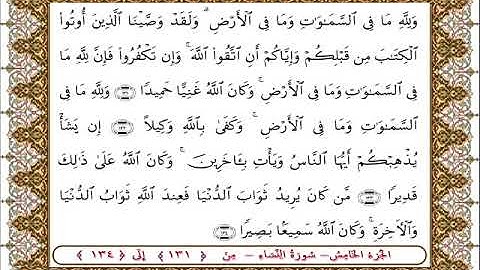 وَلِلَّهِ مَا فِي ٱلسَّمَـٰوَٰتِ وَمَا فِي ٱلۡأَرۡضِۗ وَلَقَدۡ وَصَّيۡنَا ٱلَّذِينَ أُوتُواْ
ٱلۡكِتَٰبَ مِن قَبۡلِكُمۡ وَإِيَّاكُمۡ أَنِ ٱتَّقُواْ ٱللَّهَۚ وَإِن تَكۡفُرُواْ فَإِنَّ لِلَّهِ مَا
فِي ٱلسَّمَـٰوَٰتِ وَمَا فِي ٱلۡأَرۡضِۚ وَكَانَ ٱللَّهُ غَنِيًّا حَمِيدٗا ١٣١ وَلِلَّهِ مَا فِي
ٱلسَّمَـٰوَٰتِ وَمَا فِي ٱلۡأَرۡضِۚ وَكَفَىٰ بِٱللَّهِ وَكِيلًا ١٣٢ إِن يَشَأۡ
يُذۡهِبۡكُمۡ أَيُّهَا ٱلنَّاسُ وَيَأۡتِ بِـَٔاخَرِينَۚ وَكَانَ ٱللَّهُ عَلَىٰ ذَٰلِكَ
قَدِيرٗا ١٣٣ مَّن كَانَ يُرِيدُ ثَوَابَ ٱلدُّنۡيَا فَعِندَ ٱللَّهِ ثَوَابُ ٱلدُّنۡيَا
وَٱلۡأٓخِرَةِۚ وَكَانَ ٱللَّهُ سَمِيعَۢا بَصِيرٗا ١٣٤
الجزء الخامس - سورة النساء - من ﴿ ١٣١ ﴾ إلى ﴿ ١٣٤ ﴾